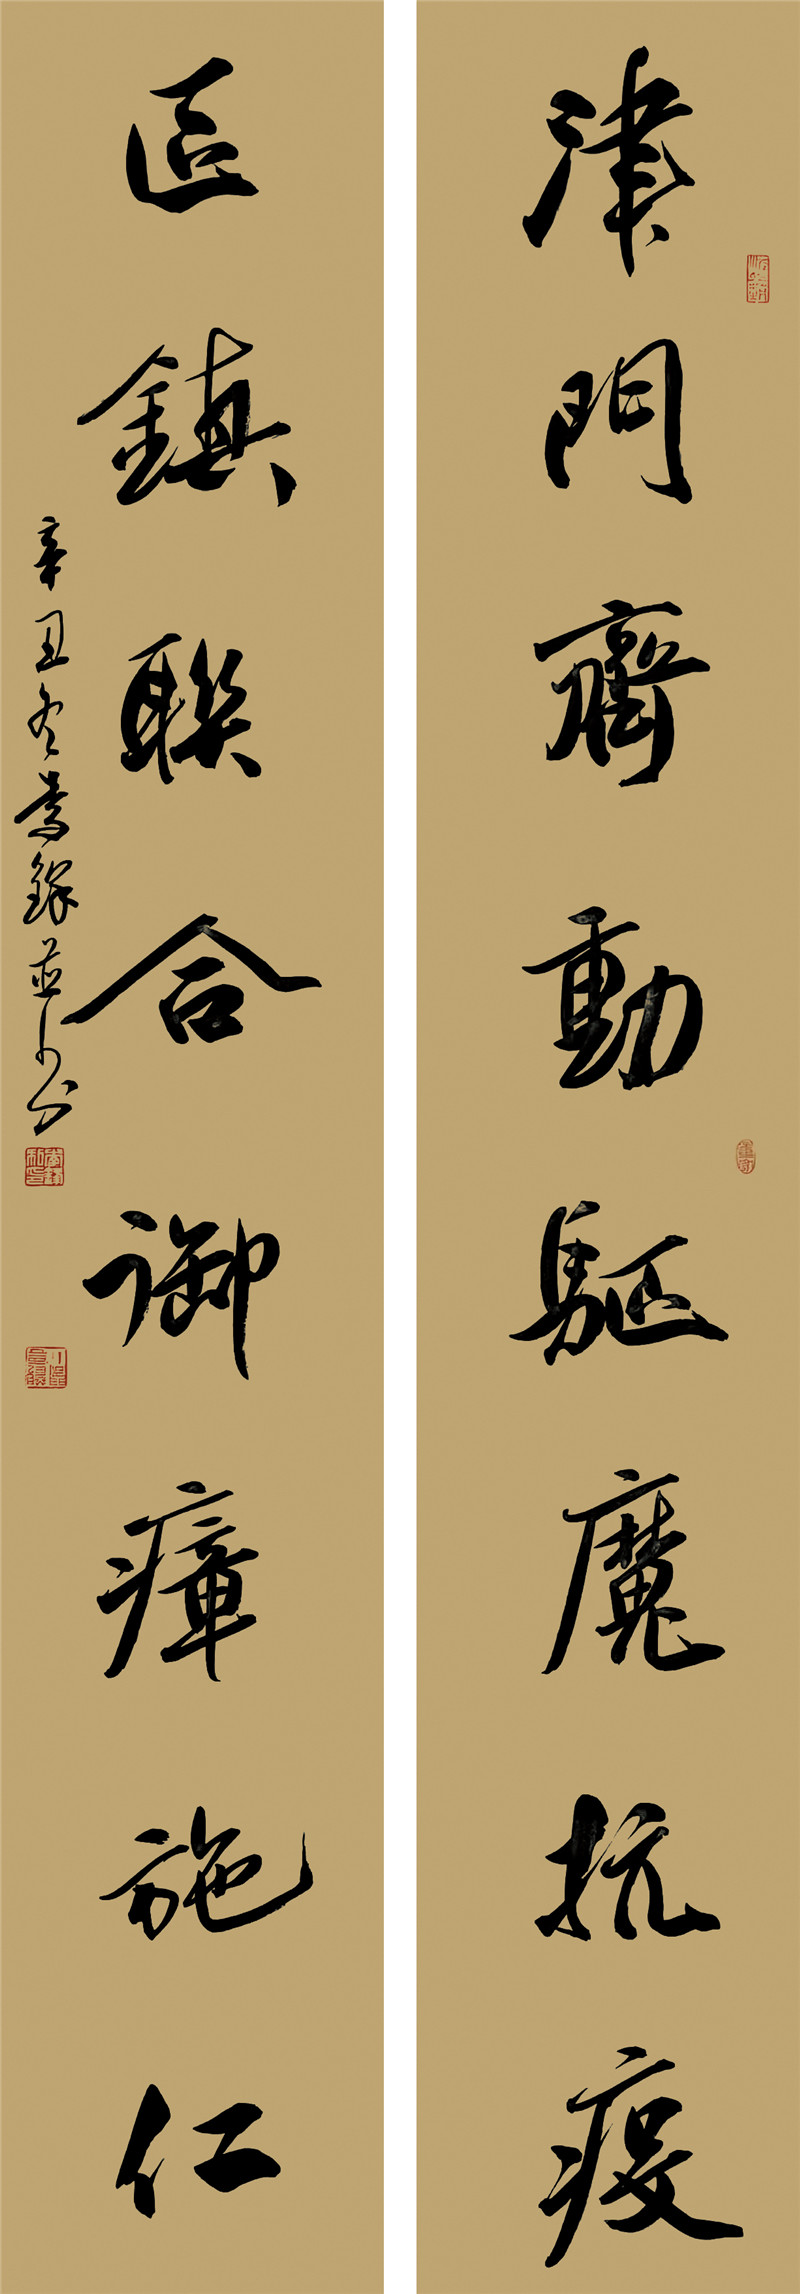 津門齊動驅魔抗疫
區鎮聯合御瘴施仁
辛丑冬 李鐸 並書